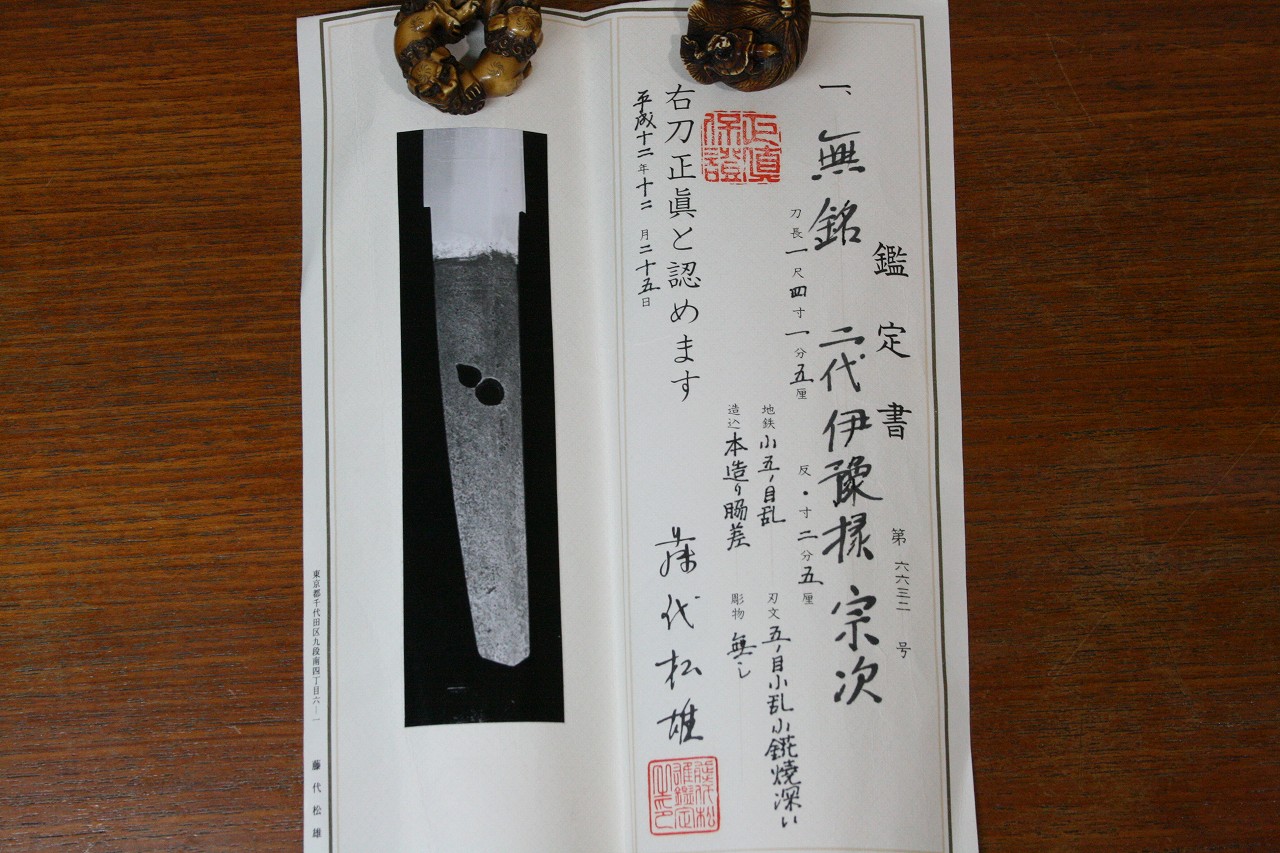 鑑定書
第 六六三二 号
一、無銘 二代伊豫掾宗次
刀長 一尺四寸一分五厘 反・寸二分五厘
地鉄 小五ノ目乱 刃文 五ノ目小乱小錵焼深い
造込 本造り脇差 彫物 無し
正真保證
右刀正眞と認めます
平成十二年十二月二十五日
藤代松雄
東京都千代田区九段南四丁目六ー一 藤代松雄